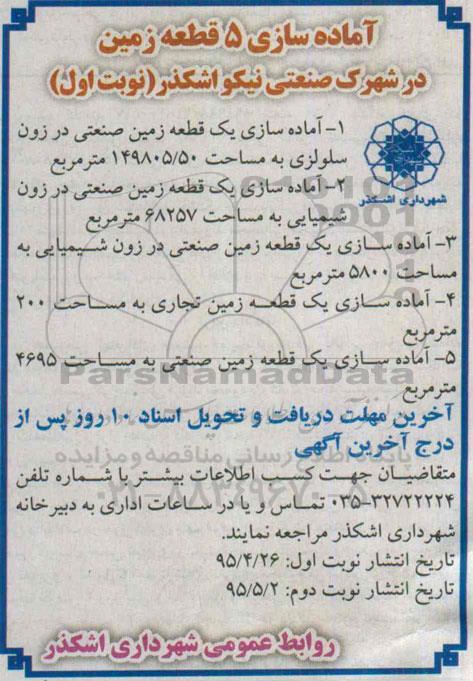 آماده سازی ۵ قطعه زمین
در شهرک صنعتی نیکو اشکذر (نوبت اول)
شهرداری اشکذر
۱- آماده سازی یک قطعه زمین صنعتی در زون
سلولزی به مساحت ۱۴۹۸۰۵/۵۰ مترمربع
۲- آماده سازی یک قطعه زمین صنعتی در زون
شیمیایی به مساحت ۶۸۲۵۷ مترمربع
۳- آماده سازی یک قطعه زمین صنعتی در زون شیمیایی به
مساحت ۵۸۰۰ مترمربع
۴- آماده سازی یک قطعه زمین تجاری به مساحت ۲۰۰
مترمربع
۵- آماده سازی یک قطعه زمین صنعتی به مساحت ۴۶۹۵
مترمربع
ParsNamadData
آخرین مهلت دریافت و تحویل اسناد ۱۰ روز پس از
درج آخرین آگهی
پایگاه اطلاع رسانی مناقصه و مزایده
متقاضیان جهت کسب اطلاعات بیشتر با شماره تلفن
۰۲۱-۸۸۳۴۹۶۷۰-۵
۰۳۵-۳۲۷۲۲۲۲۴ تماس و یا در ساعات اداری به دبیرخانه
شهرداری اشکذر مراجعه نمایند.
تاریخ انتشار نوبت اول: ۹۵/۴/۲۶
تاریخ انتشار نوبت دوم: ۹۵/۵/۲
روابط عمومی شهرداری اشکذر